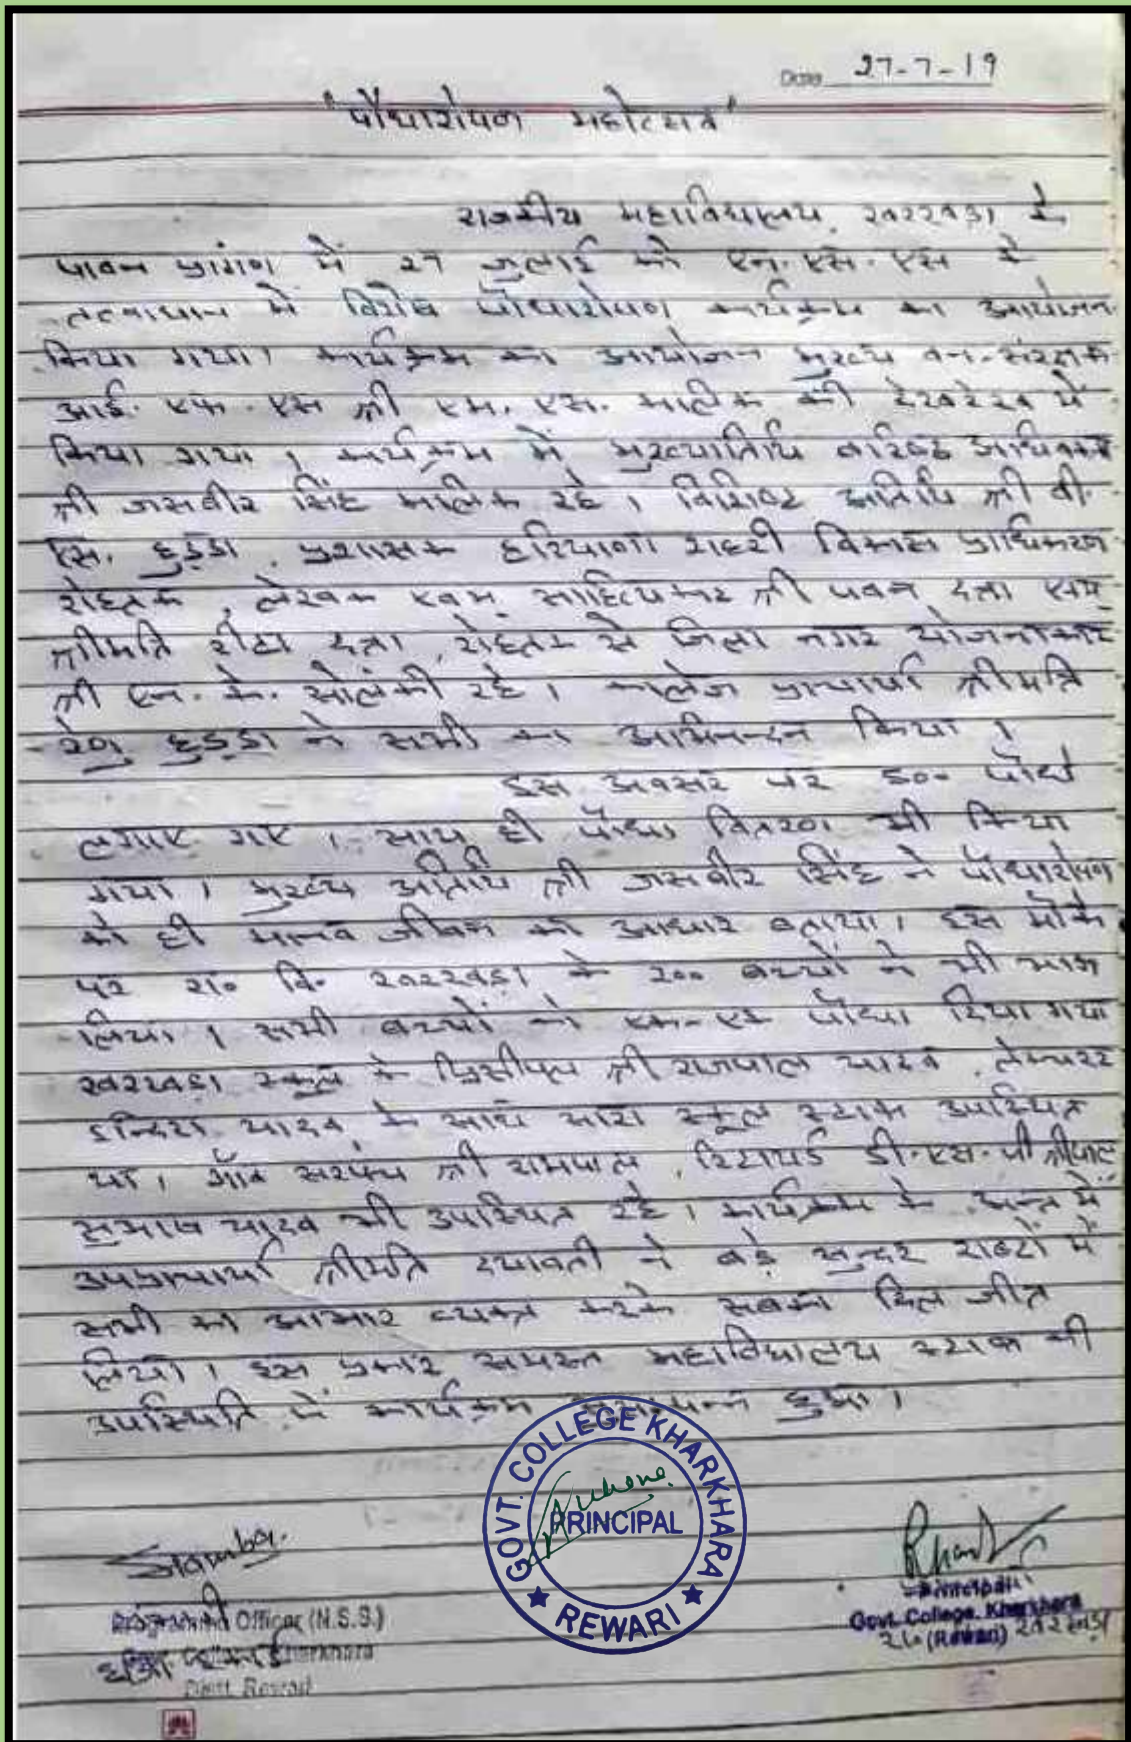 Date 27-7-19
"पौधारोपण महोत्सव"
राजकीय महाविद्यालय, खरखड़ा के
पावन प्रांगण में 27 जुलाई को एन.एस.एस के
तत्वाधान में विशेष पौधारोपण कार्यक्रम का आयोजन
किया गया। कार्यक्रम का आयोजन मुख्य वन-संरक्षक
आई. एफ. एस श्री एम. एस. मलिक की देखरेख में
किया गया। कार्यक्रम में मुख्यातिथि वरिष्ठ अधिवक्ता
श्री जसबीर सिंह मलिक रहे। विशिष्ट अतिथि श्री वी.
एस. हुड्डा, प्रशासक हरियाणा शहरी विकास प्राधिकरण
रोहतक, लेखक एवम् साहित्यकार श्री पवन दत्ता एवम्
श्रीमति रीटा दत्ता, रोहतक से जिला नगर योजनाकार
श्री एन. के. सोलंकी रहे। कालेज प्राचार्या श्रीमति
रेणु हुड्डा ने सभी का अभिनन्दन किया।
इस अवसर पर 500 पौधे
लगाए गए। साथ ही पौधा वितरण भी किया
गया। मुख्य अतिथि श्री जसबीर सिंह ने पौधारोपण
को ही मानव जीवन का आधार बताया। इस मौके
पर रा० वि० खरखड़ा के 200 बच्चों ने भी भाग
लिया। सभी बच्चों को एक-एक पौधा दिया गया
खरखड़ा स्कूल के प्रिंसीपल श्री राजपाल यादव, लेक्चरर
इन्दिरा यादव के साथ सारा स्कूल स्टाफ उपस्थित
था। गाँव सरपंच श्री रामपाल, रिटायर्ड डी.एस.पी
सुभाष यादव भी उपस्थित रहे। कार्यक्रम के अन्त में
उपप्राचार्या श्रीमति दयावती ने बड़े सुन्दर शब्दों में
सभी का आभार व्यक्त करके सबका दिल जीत
लिया। इस प्रकार समस्त महाविद्यालय स्टाफ की
उपस्थिति में कार्यक्रम सुसम्पन्न हुआ।
GOVT. COLLEGE KHARKHARA
PRINCIPAL
REWARI
Programme Officer (N.S.S.)
Kharkhara
Distt. Rewari
Principal
Govt. College, Kharkhara
(Rewari)